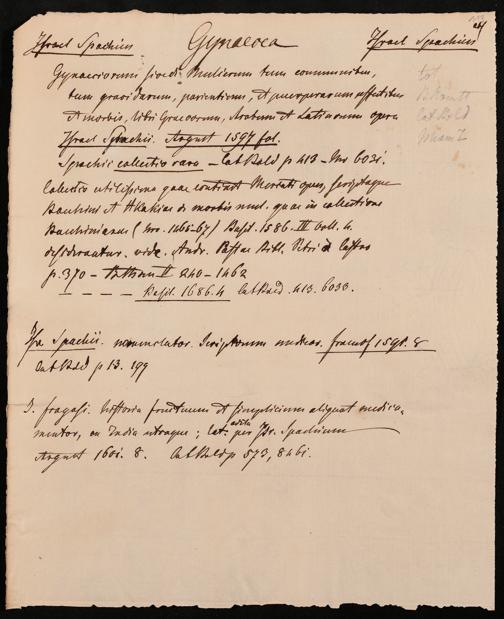 Israel Spachius. Gynaecea Israel Spachius
Gynaeciorum sive de Mulierum tum communibus,
tum gravidarum, parientium, et puerperarum affectibus
et morbis, libri Graecorum, Arabum et Latinorum opera
Israel Spachii. Argent 1597 fol.
Spachii collectio rara – Cat Bald p 413 – Nr 6031.
Collectio utilissima quae continet Mercati opus, Scriptaque
Bauhini et Akakiae de morbis mul. quae in collectione
Bauhiniana (nro. 1465-67) Basil. 1586. IV voll. 4.
desiderantur. vide. Andr. Bibl. Vitri a Castro
p. 370 – II 240-1462
– – – – Basil. 1686. 4 Cat Bald. 413. 6033.
Isr Spachii. nomenclator. Scriptorum medicor. francof 1591. 8
Cat Bald p 13. 199
J. fragosi. historia fructuum et simplicium aliquot medica-
mentor, ex India utraque; lat. edita per Isr. Spachium
Argent 1601. 8. Cat Bald p 573, 8461.
tot
Cat Bald